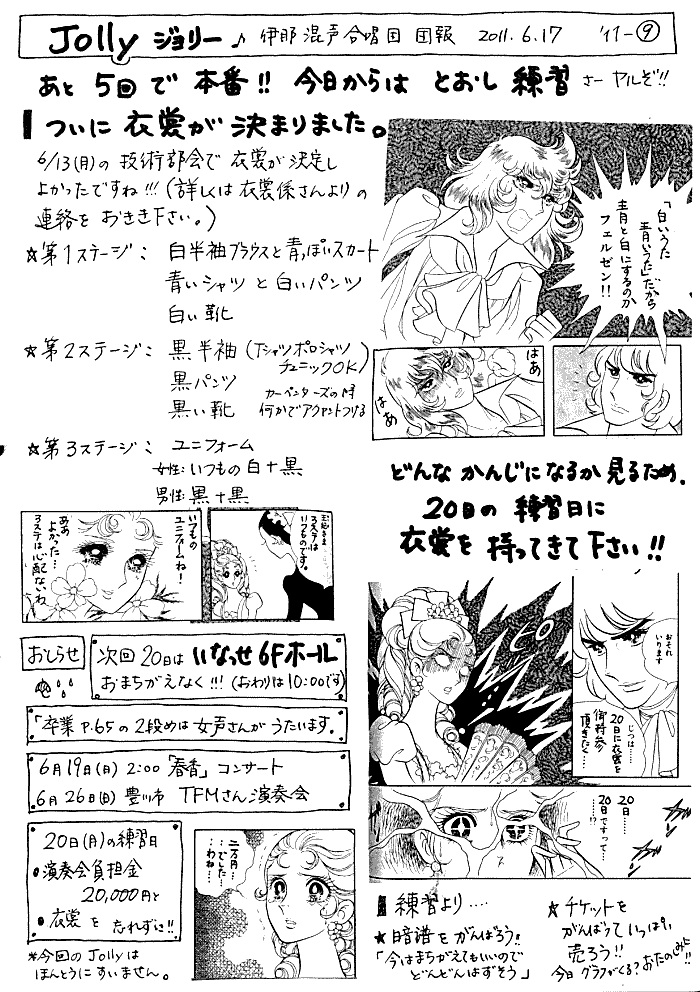 Jolly ジョリー♪ 伊那混声合唱団 団報 2011.6.17 '11-⑨
あと 5回で 本番!! 今日からは とおし 練習 さー ヤルぞ!!
ついに 衣裳が 決まりました。
6/13(月)の 技術部会で 衣裳が決定し
よかったですね!!!(詳しくは衣裳係さんよりの
連絡を おきき下さい。)
☆第1ステージ: 白半袖ブラウスと青っぽいスカート
青いシャツ と 白いパンツ
白い靴
☆第2ステージ: 黒半袖(Tシャツポロシャツ
チュニックOK)
黒パンツ
黒い靴
カーペンターズの時
何かでアクセントつける
☆第3ステージ: ユニフォーム
女性:いつもの 白+黒
男性:黒+黒
「白いうた
青いうた」だから
青と白にするのか
フェルゼン!!
はあ
はあ
どんな かんじになるか 見るため、
20日の 練習日に
衣裳を 持ってきて下さい!!
3ステは
いつものです。
いつもの
ユニフォームね!
ああ
よかった…
3ステは心配ないわ
おしらせ
次回20日は いなっせ 6Fホール
おまちがえなく!!!(おわりは10:00です)
「卒業 P.65の2段めは女声さんがうたいます。
6月19日(日) 2:00「春香」コンサート
6月26日(日) 豊川市 TFMさん演奏会
20日(月)の練習日
•演奏会負担金
20,000円と
•衣裳を 忘れずに!!
*今回のJollyは
ほんとうにすいません。
二万円…
…でした
…わね…
おそれ
いります
じつは……
20日に衣裳を
御持参
頂きたく…
ピロ
20日……
20日ですって…
…!?
練習より....
★暗譜をがんばろう!
「今はまちがえてもいいので
どんどんはずそう」
☆チケットを
がんばっていっぱい
売ろう!!
今日グラフがくる?おたのしみに!!